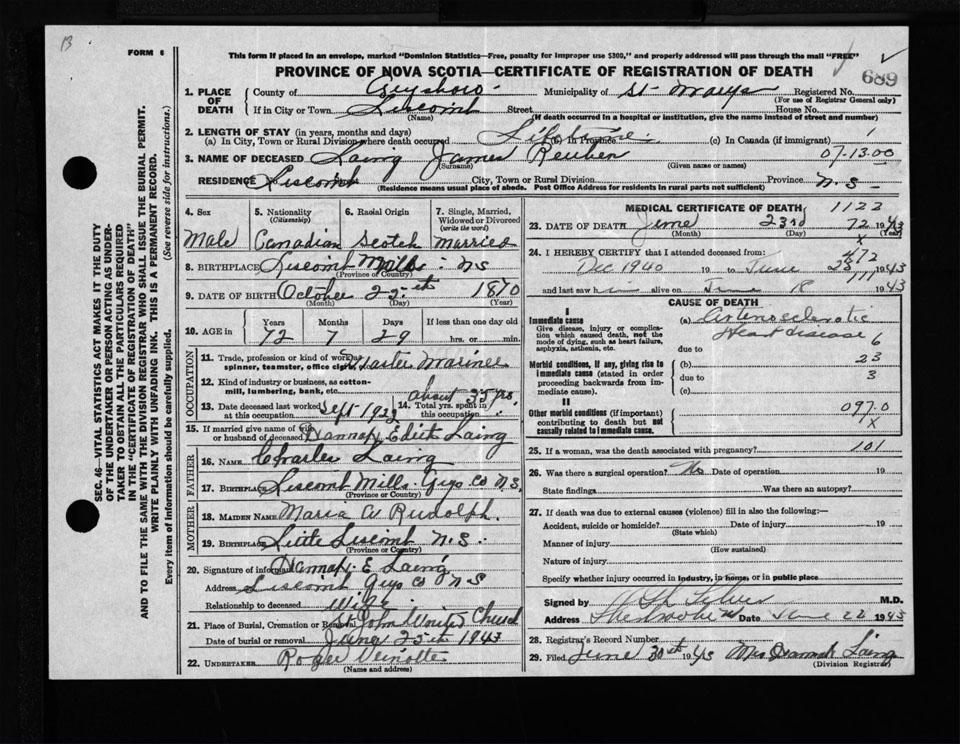 B
FORM 6
This form if placed in an envelope, marked "Dominion Statistics—Free, penalty for improper use $300," and properly addressed will pass through the mail "FREE"
PROVINCE OF NOVA SCOTIA—CERTIFICATE OF REGISTRATION OF DEATH
689
1. PLACE OF DEATH County of Guysboro Municipality of St. Marys Registered No.
(For use of Registrar General only)
If in City or Town Liscomb Street House No.
(Name) (If death occurred in a hospital or institution, give the name instead of street and number)
2. LENGTH OF STAY (in years, months and days)
(a) In City, Town or Rural Division where death occurred Lifetime (b) In Province (c) In Canada (if immigrant)
3. NAME OF DECEASED Laing James Reuben 07-13.00
(Surname) (Given name or names)
RESIDENCE Liscomb City, Town or Rural Division Province N.S.
(Residence means usual place of abode. Post Office Address for residents in rural parts not sufficient)
4. Sex Male
5. Nationality (Citizenship) Canadian
6. Racial Origin Scotch
7. Single, Married, Widowed or Divorced (write the word) Married
8. BIRTHPLACE Liscomb Mills NS
(Province or Country)
9. DATE OF BIRTH October 25th 1870
(Month) (Day) (Year)
10. AGE in Years Months Days If less than one day old
72 7 29 hrs. or min.
OCCUPATION
11. Trade, profession or kind of work as spinner, teamster, office clerk, etc. Master Mariner
12. Kind of industry or business, as cotton-mill, lumbering, bank, etc.
13. Date deceased last worked at this occupation Sept 1922
14. Total yrs. spent in this occupation about 35 yrs.
15. If married give name of wife or husband of deceased Hannah Edith Laing
FATHER
16. NAME Charles Laing
17. BIRTHPLACE Liscomb Mills Guys Co N.S.
(Province or Country)
MOTHER
18. MAIDEN NAME Maria A Rudolph
19. BIRTHPLACE Little Liscomb N.S.
(Province or Country)
20. Signature of informant Hannah E Laing
Address Liscomb Guys Co NS
Relationship to deceased Wife
21. Place of Burial, Cremation or Removal St John United Church
Date of burial or removal June 25th 1943
22. UNDERTAKER Roger
(Name and address)
MEDICAL CERTIFICATE OF DEATH 1123
23. DATE OF DEATH June 23rd 1943
(Month) (Day) (Year)
72
x
24. I HEREBY CERTIFY that I attended deceased from:
Dec 1940 19 to June 23 1943
and last saw h im alive on June 18 1943
CAUSE OF DEATH
I
Immediate cause
Give disease, injury or complication which caused death, not the mode of dying, such as heart failure, asphyxia, asthenia, etc.
(a) Arteriosclerotic Heart disease
due to 6
Morbid conditions, if any, giving rise to immediate cause (stated in order proceeding backwards from immediate cause).
(b) 23
due to 3
(c)
II
Other morbid conditions (if important) contributing to death but not causally related to immediate cause.
097.0
x
25. If a woman, was the death associated with pregnancy? 101
26. Was there a surgical operation? No Date of operation 19
State findings Was there an autopsy?
27. If death was due to external causes (violence) fill in also the following:—
Accident, suicide or homicide? Date of injury 19
(State which)
Manner of injury
(How sustained)
Nature of injury
Specify whether injury occurred in industry, in home, or in public place
Signed by M.D.
Address Sherbrooke Date June 22 1943
28. Registrar's Record Number
29. Filed June 30th 1943 Mrs Laing
(Division Registrar)
SEC. 46—VITAL STATISTICS ACT MAKES IT THE DUTY
OF THE UNDERTAKER OR PERSON ACTING AS UNDER-
TAKER TO OBTAIN ALL THE PARTICULARS REQUIRED
IN THE "CERTIFICATE OF REGISTRATION OF DEATH"
AND TO FILE THE SAME WITH THE DIVISION REGISTRAR WHO SHALL ISSUE THE BURIAL PERMIT.
WRITE PLAINLY WITH UNFADING INK. THIS IS A PERMANENT RECORD.
Every item of information should be carefully supplied. (See reverse side for instructions.)